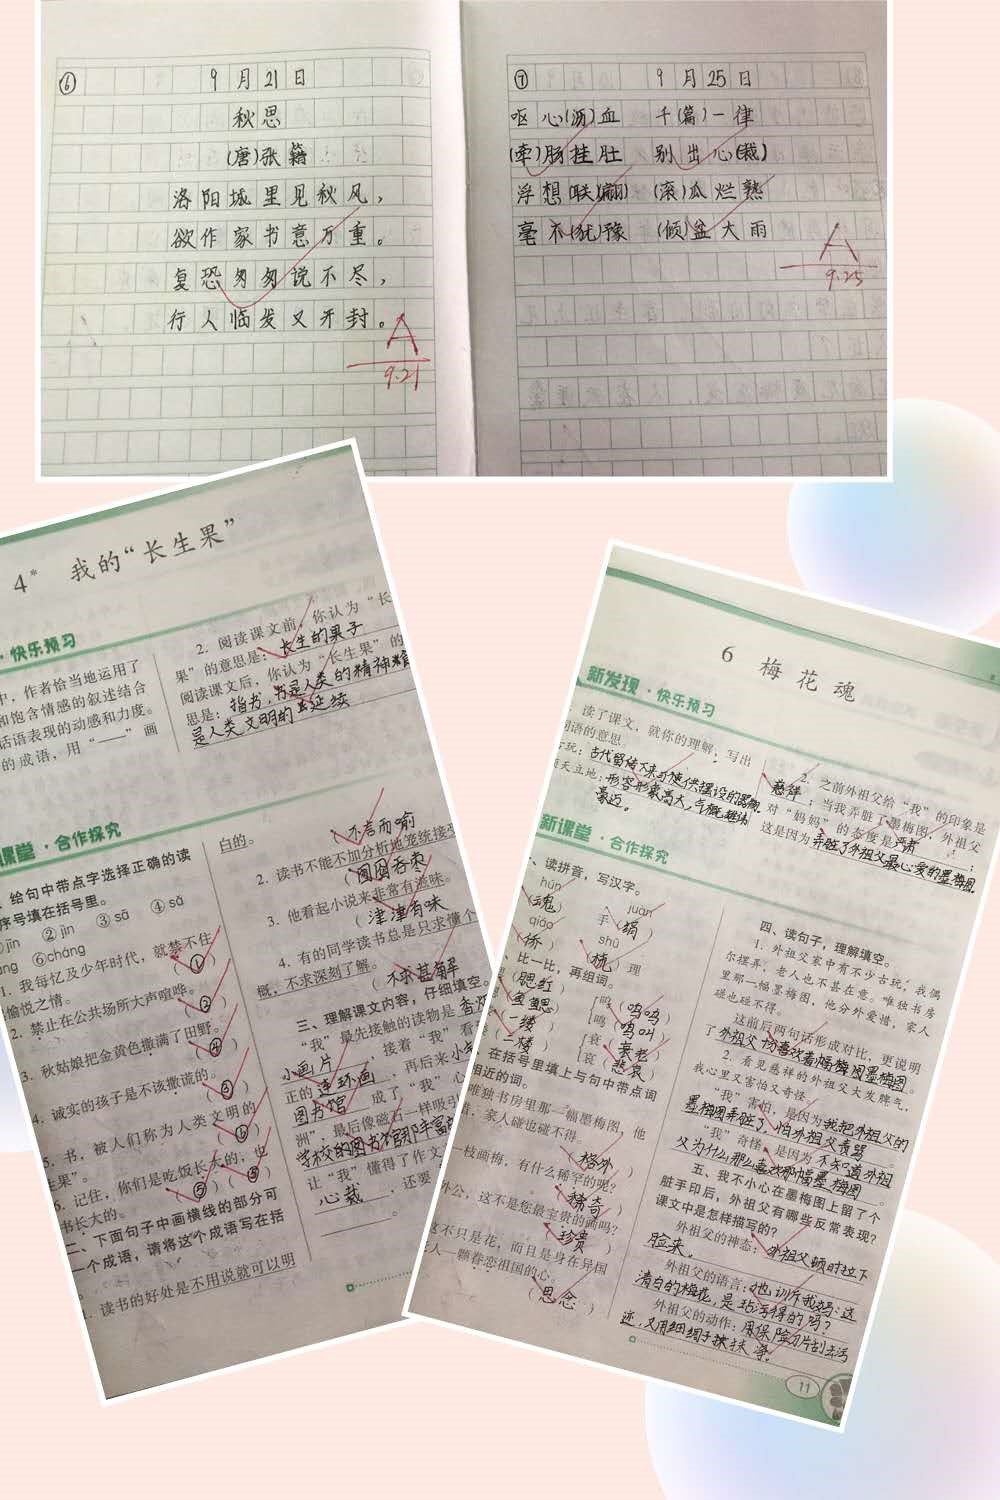 ⑥ 9月21日
秋思
(唐)张籍
洛阳城里见秋风，
欲作家书意万重。
复恐匆匆说不尽，
行人临发又开封。
A
9.21
⑦ 9月25日
呕心(沥)血 千(篇)一律
(牵)肠挂肚 别出心(裁)
浮想(联)(翩) (滚)瓜烂熟
毫不(犹)豫 (倾)盆大雨
A
9.25
4* 我的“长生果”
·快乐预习
中，作者恰当地运用了
和饱含情感的叙述结合
话语表现的动感和力度。
的成语，用“——”画
2. 阅读课文前，你认为“长
果”的意思是：长生的果子
阅读课文后，你认为“长生果”的
思是：指书，书是人类的精神粮
是人类文明的延续
课堂·合作探究
给句中带点字选择正确的读
序号填在括号里。
①jīn ②jìn ③sā ④sǎ
⑥cháng
1. 我每忆及少年时代，就禁不住
愉悦之情。 (①)
2. 禁止在公共场所大声喧哗。
(②)
3. 秋姑娘把金黄色撒满了田野。
(④)
4. 诚实的孩子是不该撒谎的。
(③)
5. 书，被人们称为人类文明的
生果”。 (⑥)
6. 记住，你们是吃饭长大的，也
书长大的。 (⑤)(⑤)
二、下面句子中画横线的部分可
一个成语，请将这个成语写在括
1. 读书的好处是不用说就可以明
白的。
(不言而喻
2. 读书不能不加分析地笼统接受
(囫囵吞枣
3. 他看起小说来非常有滋味。
(津津有味
4. 有的同学读书总是只求懂个
概，不求深刻了解。
(不求甚解
三、理解课文内容，仔细填空。
“我”最先接触的读物是香烟
小画片，接着“我”看
正的连环画，再后来小
图书馆成了“我”心
洲”，最后像磁石一样吸引
让“我”懂得了作文
心裁，还要
。
6 梅花魂
新发现·快乐预习
读了课文，就你的理解，写出
词语的意思。
古玩：古代留传下来可供摆设的器物。
顶天立地：形容形象高大，气概雄伟
豪迈。
2. 之前外祖父给“我”的印象是
慈祥；当我弄脏了墨梅图，外祖父
对“妈妈”的态度是严肃；
这是因为弄脏了外祖父最心爱的墨梅图。
新课堂·合作探究
一、读拼音，写汉字。
hún juàn
(魂) 手(绢)
qiáo shū
(侨) (梳)理
二、比一比，再组词。
腮红 呜(呜呜)
鱼鳃 鸣(鸣叫)
一缕 衰(衰老)
二楼 哀(悲哀)
在括号里填上与句中带点词
相近的词。
唯独书房里那一幅墨梅图，他
惜，家人碰也碰不得。
(格外
一枝画梅，有什么稀罕的呢？
(稀奇)
外公，这不是您最宝贵的画吗？
(珍贵)
这不只是花，而且是身在异国
人一颗眷恋祖国的心。
(思念)
四、读句子，理解填空。
1. 外祖父家中有不少古玩，我偶
尔摆弄，老人也不甚在意。唯独书房
里那一幅墨梅图，他分外爱惜，家人
碰也碰不得。
这前后两句话形成对比，更说明
了外祖父十分喜欢着幅梅图墨梅图。
2. 看见慈祥的外祖父大发脾气，
我心里又害怕又奇怪。
“我”害怕，是因为我把外祖父的
墨梅图弄脏了，怕外祖父责骂
“我”奇怪，是因为不知道外祖
父为什么那么喜欢那幅墨梅图。
五、我不小心在墨梅图上留了个
脏手印后，外祖父有哪些反常表现？
课文中是怎样描写的？
外祖父的神态：外祖父顿时拉下
脸来。
外祖父的语言：他训斥我妈：这
清白的梅花，是玷污得的吗？
外祖父的动作：用保险刀片刮去污
迹，又用细绸子抹
11